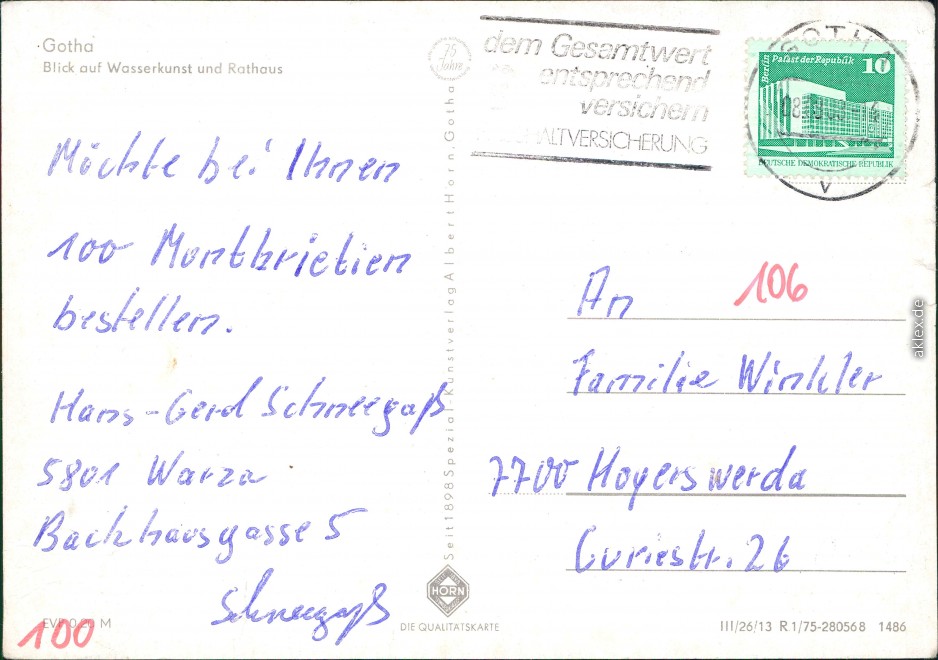 Gotha
Blick auf Wasserkunst und Rathaus
75
Jahre
dem Gesamtwert
entsprechend
versichern
HALTVERSICHERUNG
GOTHA
Berlin Palast der Republik 10
DEUTSCHE DEMOKRATISCHE REPUBLIK
v
Möchte bei Ihnen
100 Montbrietien
bestellen.
Hans-Gerd Schneegaß
5801 Warza
Backhausgasse 5
Schneegaß
100
EVP 0,20 M
Seit 1898 Spezial-Kunstverlag Albert Horn, Gotha
HORN
DIE QUALITÄTSKARTE
An
106
Familie Winkler
7700 Hoyerswerda
Curiestr. 26
III/26/13 R 1/75-280568 1486
aklex.de